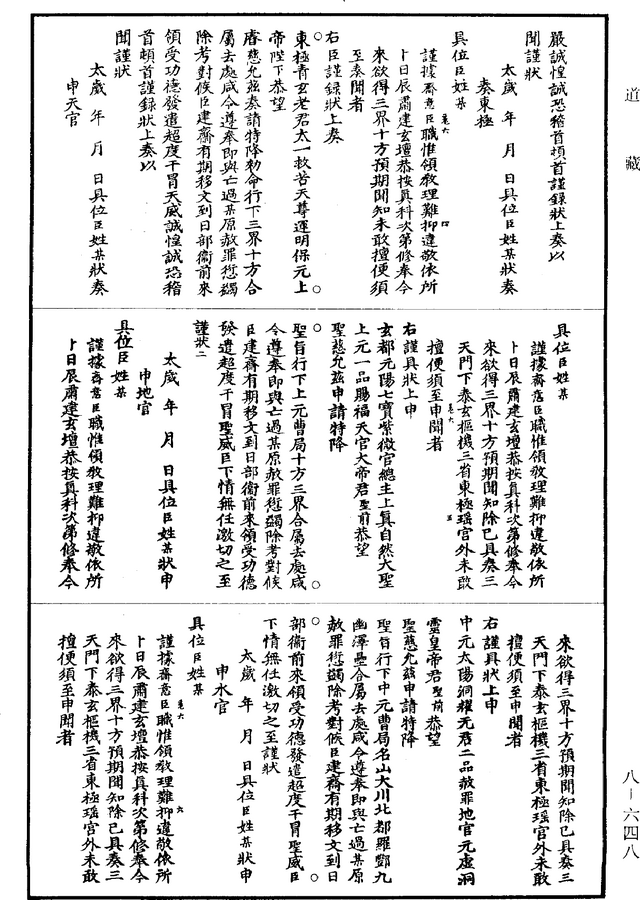 道藏
嚴誠惶誠恐稽首頓首謹錄狀上奏以
聞謹狀
太歲 年 月 日具位臣姓某狀奏
奏東極
具位臣姓某
謹據齋意臣職惟領敎理難抑違敬依所
卜日辰肅建玄壇恭按眞科次第修奉今
來欲得三界十方預期聞知未敢擅便須
至奏聞者
右臣謹錄狀上奏
東極青玄老君太一救苦天尊運明保元上
帝陛下恭望
睿慈允茲奏請特降勅命行下三界十方合
屬去處咸令遵奉即與亡過某原赦罪愆蠲
除考對候臣建齋有期移文到日部衞前來
領受功德發遣超度干冒天威誠惶誠恐稽
首頓首謹錄狀上奏以
聞謹狀
太歲 年 月 日具位臣姓某狀奏
申天官
具位臣姓某
謹據齋意臣職惟領敎理難抑違敬依所
卜日辰肅建玄壇恭按眞科次第修奉今
來欲得三界十方預期聞知除已具奏三
天門下泰玄樞機三省東極瑤宮外未敢
擅便須至申聞者
右謹具狀上申
玄都元陽七寶紫微宮總主上眞自然大聖
上元一品賜福天官大帝君聖前恭望
聖慈允茲申請特降
聖旨行下上元曹局十方三界合屬去處咸
令遵奉即與亡過某原赦罪愆蠲除考對候
臣建齋有期移文到日部衞前來領受功德
發遣超度干冒聖威臣下情無任激切之至
謹狀二
太歲 年 月 日具位臣姓某狀申
申地官
具位臣姓某
謹據齋意臣職惟領敎理難抑違敬依所
卜日辰肅建玄壇恭按眞科次第修奉今
來欲得三界十方預期聞知除已具奏三
天門下泰玄樞機三省東極瑤宮外未敢
擅便須至申聞者
右謹具狀上申
中元太陽洞耀元君二品赦罪地官元虛洞
靈皇帝君聖前恭望
聖慈允茲申請特降
聖旨行下中元曹局名山大川北都羅酆九
幽澤壘合屬去處咸令遵奉即與亡過某原
赦罪愆蠲除考對候臣建齋有期移文到日
部衞前來領受功德發遣超度干冒聖威臣
下情無任激切之至謹狀
太歲 年 月 日具位臣姓某狀申
申水官
具位臣姓某
謹據齋意臣職惟領敎理難抑違敬依所
卜日辰肅建玄壇恭按眞科次第修奉今
來欲得三界十方預期聞知除已具奏三
天門下泰玄樞機三省東極瑤宮外未敢
擅便須至申聞者
八-六四八